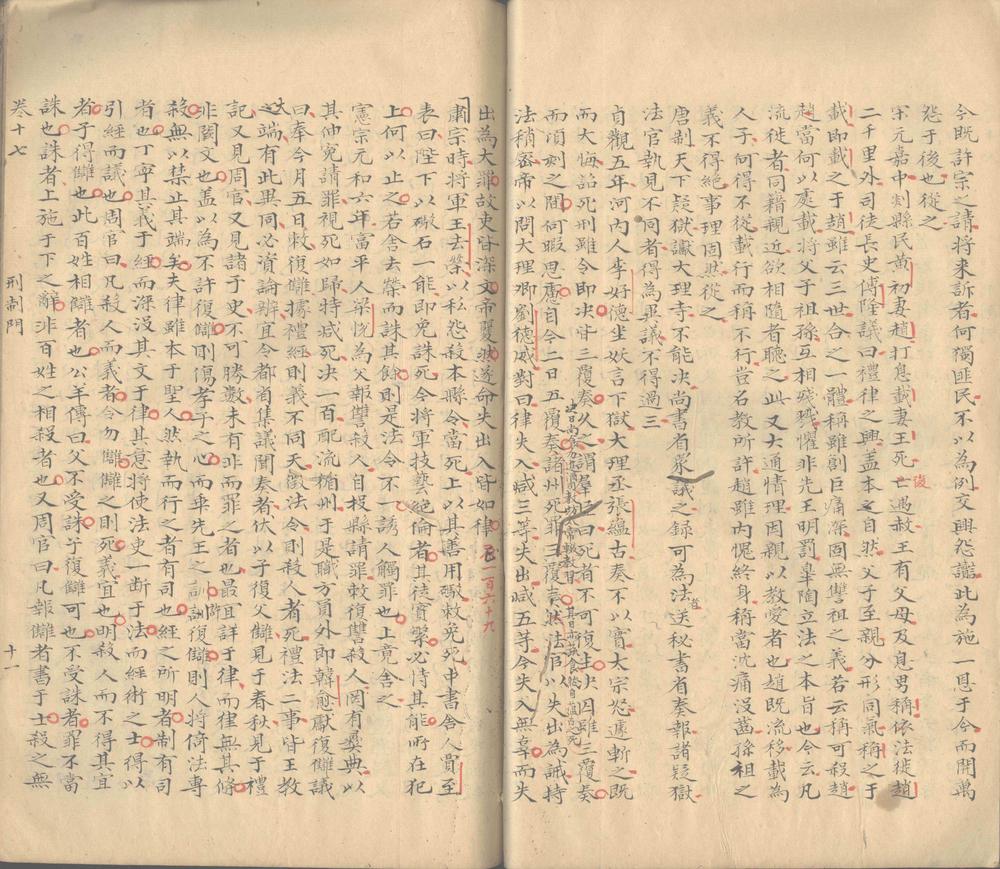 今既許宗之請將来訴者何獨匪民不以為例交興怨讟此為施一恩于今而開萬
怨于後也從之
宋元嘉中剡縣民黃初妻趙打息載妻王死亡遇赦王有父母及息男稱依法徙趙
二千里外司徒長史傅隆議曰禮律之興盖本之自然父子至親分形同氣稱之于
載即載之于趙雖云三世合之一體稱雖創巨痛深固無讐祖之義若云稱可殺趙
趙當何以處載將父子祖孫互相殘戮懼非先王明罰臯陶立法之本旨也今云凡
流徙者同籍親近欲相隨者聽之此又大通情理因親以教愛者也趙既流移載為
人子何得不從載行而稱不行豈名教所許趙雖内愧終身稱當沈痛沒齒孫祖之
義不得絕事理固然從之
唐制天下疑獄讞大理寺不能决尚書省衆議之録可為法者送秘書省奏報諸疑獄
法官執見不同者得為異議不得過三
貞觀五年河内人李好德坐妖言下獄大理丞張蘊古奏不以實太宗怒遽斬之既
而大悔詔死刑雖令即决皆三覆奏久之謂羣臣曰死者不可復生决囚雖三覆奏
而頃刻之間何暇思慮自今二日五覆奏諸州死罪三覆奏然法官以失出為誡持
法稍密帝以問大理卿劉德威對曰律失入减三等失出减五等今失入無辜而失
出為大罪故吏皆深文帝矍然遂命失出入皆如律
肅宗時將軍王去榮以私怨殺本縣令當死上以其善用礮敕免死中書舍人賈至
表曰陛下以礮石一能即免誅死今將軍技藝絕倫者其徒寔繁必恃其能所在犯
上何以止之若舍去榮而誅其餘則是法令不一誘人觸罪也上竟舍之
憲宗元和六年富平人梁悅為父報讐殺人自投縣請罪敕復讐殺人固有彝典以
其伸寃請罪視死如歸特減死决一百配流循州于是職方員外郎韓愈獻復讎議
曰奉今月五日敕復讎據禮經則義不同天徵法令則殺人者死禮法二事皆王教
之大端有此異同必資論辨宜令都省集議聞奏者伏以子復父讎見于春秋見于禮
記又見周官又見諸子史不可勝數未有非而罪之者也最宜詳于律而律無其條
非闕文也盖以為不許復讎則傷孝子之心而乖先王之訓許復讎則人將倚法專
殺無以禁止其端矣夫律雖本于聖人然執而行之者有司也經之所明者制有司
者也丁寧其義于經而深没其文于律其意將使法吏一断于法而經術之士得以
引經而議也周官曰凡殺人而義者令勿讎讎之則死義宜也明殺人而不得其宜
者子得讎也此百姓相讎者也公羊傳曰父不受誅子復讎可也不受誅者罪不當
誅也誅者上施于下之辭非百姓之相殺者也又周官曰凡報讎者書于士殺之無
卷十七 刑制門 十一